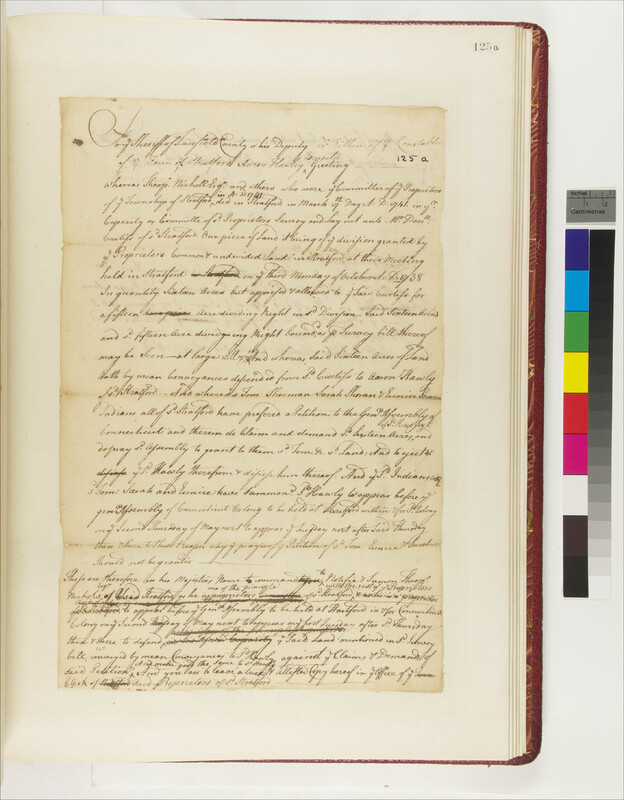 125a
To ye Sheriff of Fairfield County his Deputy or Either of ye Constable
of ye Town of Stratford Greeting
125 a
Whereas Theop. Nichols Esqr. and others who were ye Committee of ye Proprietors
of ye Township of Stratford in A.D. 1741 did in Stratford in March Day A. D. 1741 in yr.
Capacity as Committee of sd. Proprietors Survey and Lay out unto Mr.
Curtiss of sd. Stratford One piece of Land being of ye division granted by
ye Proprietors Common & undivided Land in Stratford at their Meeting
held in Stratford on ye third Monday of October A.D. 1738
In quantity Sixteen Acres but apprised & allowed to ye Said Curtiss for
a fifteen Acre dividing Right in sd. Division Said Sixteen Acres
and sd. fifteen Acre dividing Right bounded as pr. Survey bill thereof
may be Seen at large And whereas Said Sixteen Acres of Land
hath by mean Conveyances descended from sd. Curtiss to Aaron Hawly
of sd. Stratford And whereas Tom Sherman Sarah Sherman & Eunice Sherman
Indians all of sd. Stratford have prefered a Petition to the Genll. Assembly of
Connecticut and therein do Claim and demand sd. Sixteen Acres, and
do pray sd. Assembly to grant to them sd. Tom & sd. Land; And to eject &
ye sd. Hawly therefrom & disseise him thereof And ye sd. Indians
Tom Sarah and Eunice have Summond. sd. Hawly to appear before ye
genll. Assembly of Connecticut Colony to be held at Hartford within & for sd. Colony
on ye Second Thursday of May next to appear ye tuesday next after said Thursday
then & there to Shew Reason why ye prayer of ye Petition of sd. Tom Eunice & Sarah
Should not be granted
These are therefore in his Majesties Name to command you to Notifie & Summon Theop.
Nichols of Stratford one of the principle Proprietors of sd. Stratford, with the rest of ye Proprietors
to appear before ye Genll. Assembly to be held at Hartford in & for Connecticut
Colony on ye Second Thursday of May next to appear on ye first Tuesday after sd. Thursday
then & there to defend ye Said Land mentioned in sd. Survey
bill, conveyed by mean Conveyances to sd. Hawly against ye Claims & Demands of
said Petition, And make good the Same to sd. Hawly
And you are to leave a true & attested Copy hereof in ye Office of ye
Clerk of Said Proprietors of sd. Stratford
Inches
1
2
Centimetres